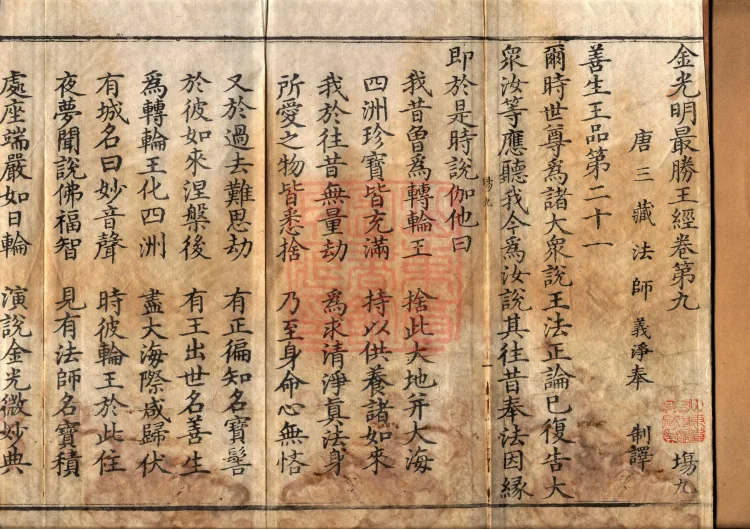 金光明最勝王經卷第九　場九
唐三藏法師　義淨奉　制譯
善生王品第二十一
爾時世尊為諸大衆說王法正論已復告大
衆汝等應聽我今為汝說其往昔奉法因緣
場九
即於是時說伽他曰
我昔曾為轉輪王　捨此大地并大海
四洲珍寶皆充滿　持以供養諸如來
我於往昔無量劫　為求清淨真法身
所愛之物皆悉捨　乃至身命心無悋
又於過去難思劫　有正徧知名寶髻
於彼如來涅槃後　有王出世名善生
為轉輪王化四洲　盡大海際咸歸伏
有城名曰妙音聲　時彼輪王於此住
夜夢聞說佛福智　見有法師名寶積
處座端嚴如日輪　演說金光微妙典